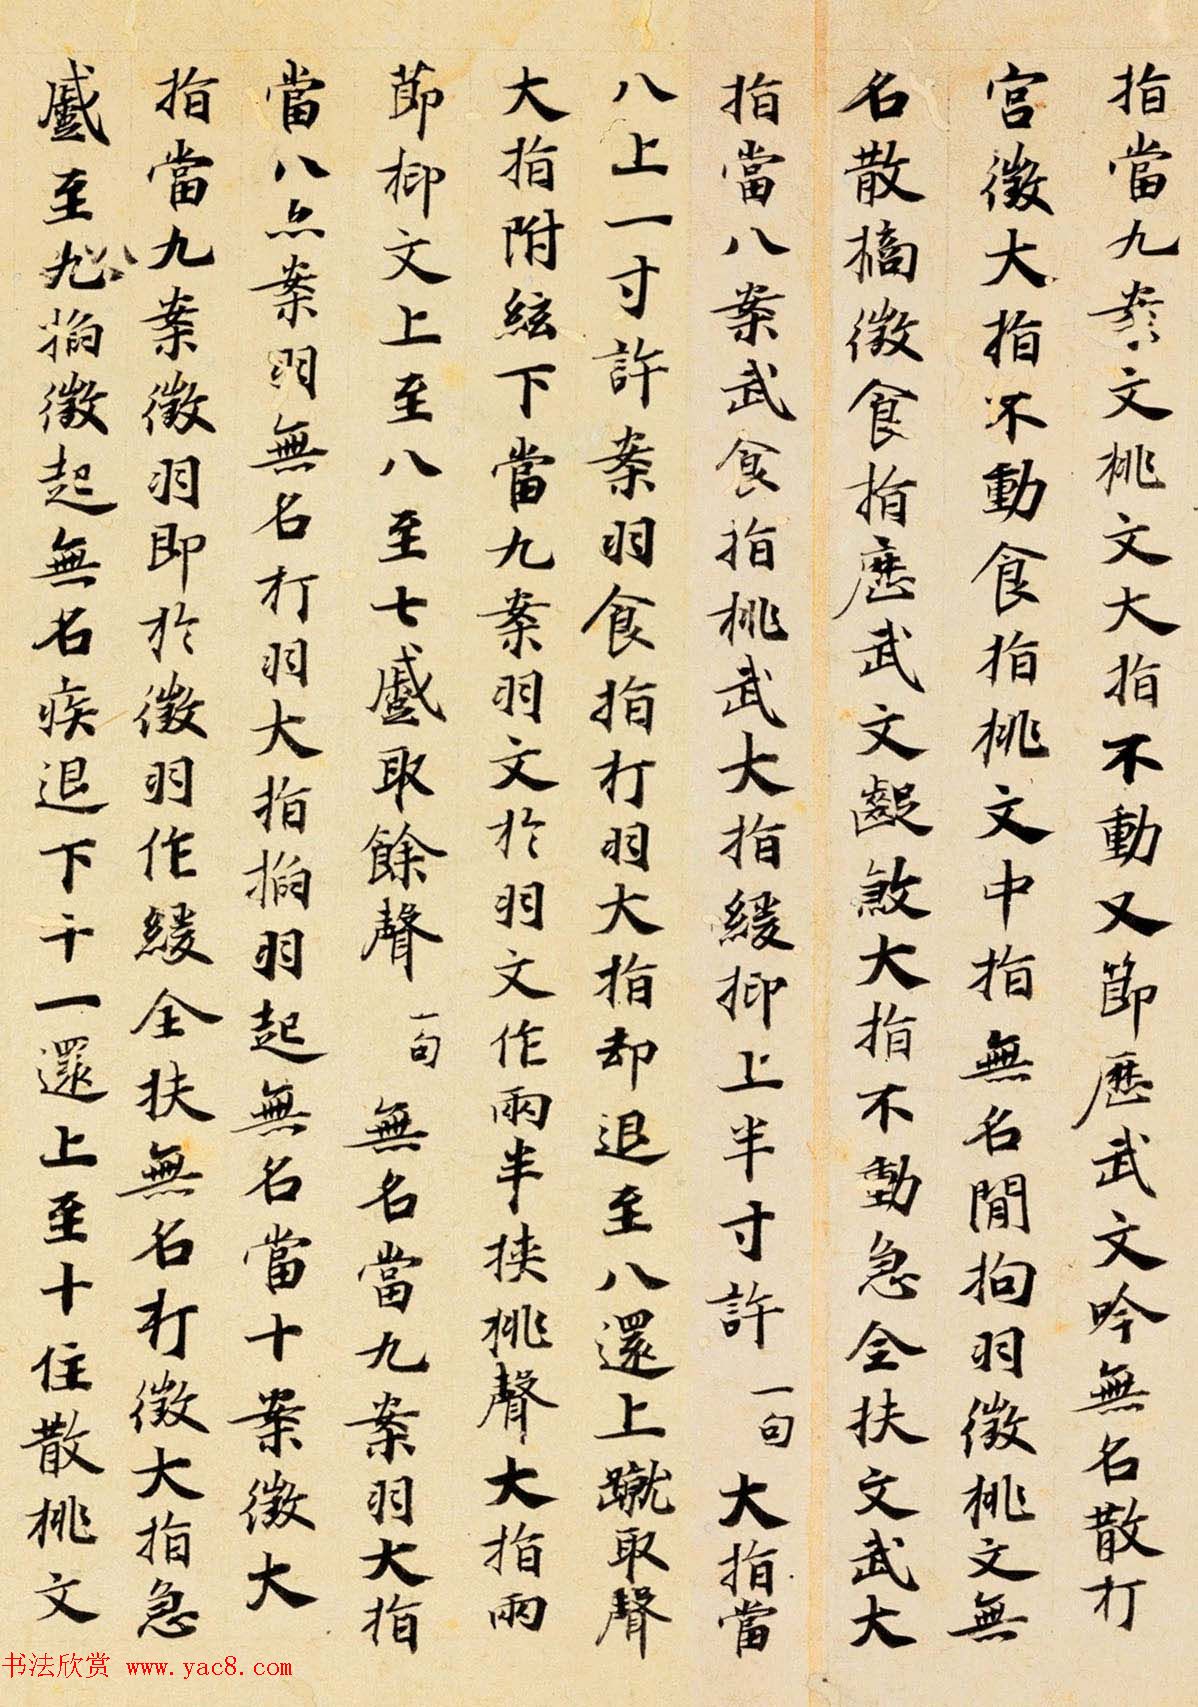 指當九案文桃文大指不動又節歷武文吟無名散打
宮徵大指不動食指桃文中指無名間拘羽徵桃文無
名散擿徵食指歷武文齪煞大指不動急全扶文武大
指當八案武食指桃武大指緩抑上半寸許一句大指當
八上一寸許案羽食指打羽大指却退至八還上蹴取聲
大指附絃下當九案羽文於羽文作兩半挾桃聲大指兩
節抑文上至八至七蹙取餘聲一句無名當九案羽大指
當八点案羽無名打羽大指搯羽起無名當十案徵大
指當九案徵羽即於徵羽作緩全扶無名打徵大指急
蹙至八搯徵起無名疾退下十一還上至十住散桃文
书法欣赏 www.yac8.com